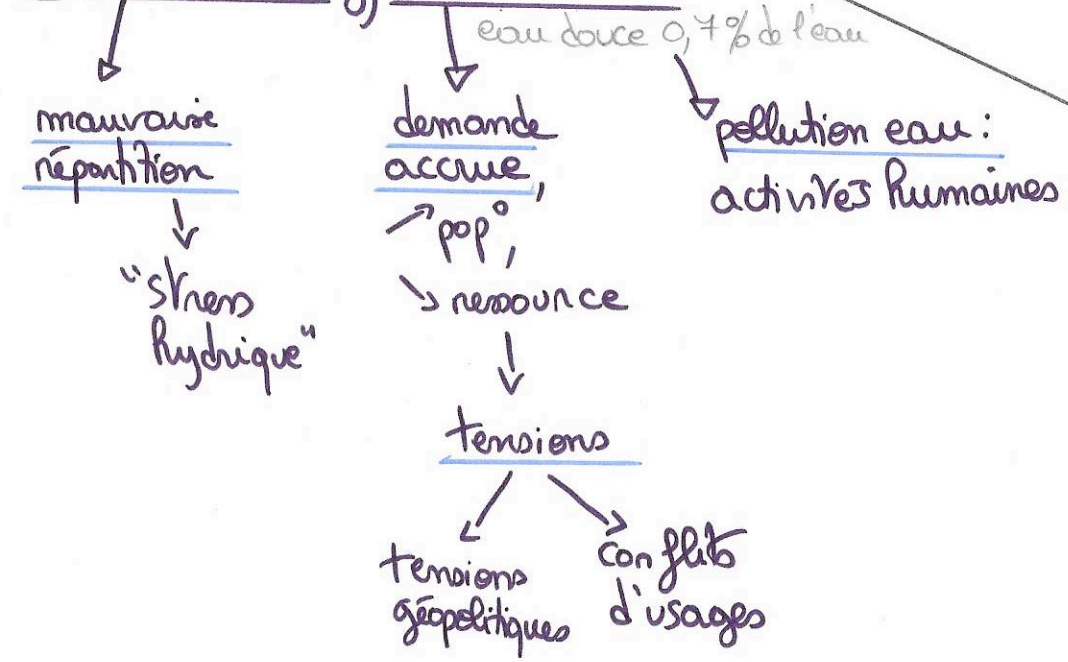 eau douce 0,7% de l'eau
mauvaise
répartition
"stress
hydrique"
demande
accrue,
↗ pop°,
↘ ressource
tensions
tensions
géopolitiques
conflits
d'usages
pollution eau :
activités humaines